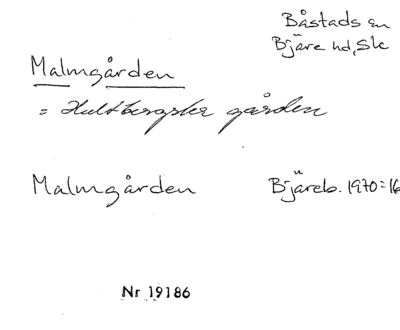 Båstads sn
Bjäre hd, Sk
Malmgården
= Hultbergska gården
Malmgården Bjäreb. 1970:16
Nr 19186